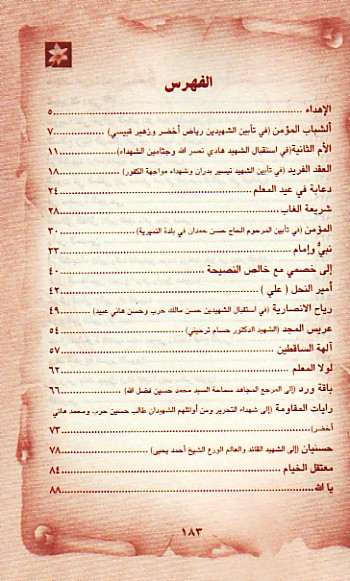 الفهرس
الإهداء ..... ٥
ألشباب المؤمن (في تأبين الشهيدين رياض أخضر وزهير قبيسي) ..... ٧
الأم الثانية(في استقبال الشهيد هادي نصر الله وجثامين الشهداء) ..... ١١
العقد الفريد (في تأبين الشهيد تيسير بدران وشهداء مواجهة الكفور) ..... ١٨
دعابة في عيد المعلم ..... ٢٤
شريعة الغاب ..... ٢٨
المؤمن (في تأبين المرحوم الحاج حسن حمدان في بلدة النميرية) ..... ٣٠
نبيٌّ وإمام ..... ٣٣
إلى خصمي مع خالص النصيحة ..... ٤٠
أمير النحل ( علي ) ..... ٤٢
رياح الانصارية (في استقبال الشهيدين حسن مالك حرب وحسن هاني عبيد) ..... ٤٩
عريس المجد (الشهيد الدكتور حسام ترحيني) ..... ٥٤
آلهة الساقطين ..... ٥٧
لولا المعلم ..... ٦٢
باقة ورد (إلى المرجع المجاهد سماحة السيد محمد حسين فضل الله) ..... ٦٦
رايات المقاومة (إلى شهداء التحرير ومن أوائلهم الشهيدان طالب حسين حرب ومحمد هاني
أخضر) ..... ٧٣
حسنيان (إلى الشهيد القائد والعالم الورع الشيخ أحمد يحيى) ..... ٧٨
معتقل الخيام ..... ٨٤
يا الله ..... ٨٨
١٨٣